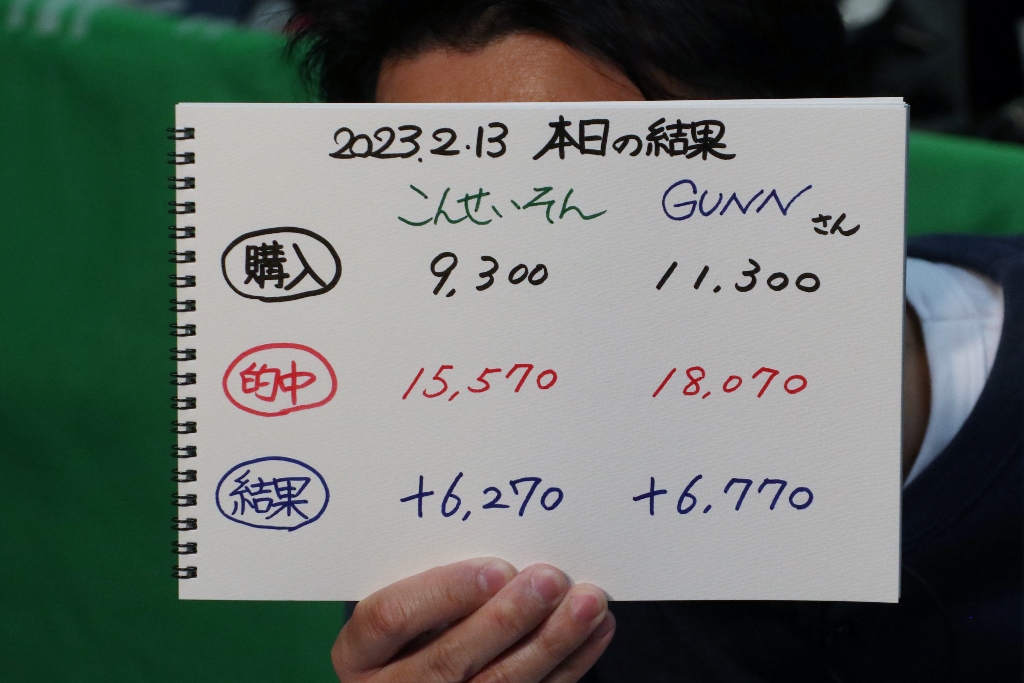 2023.2.13 本日の結果
こんせいそん GUNNさん
購入 9,300 11.300
的中 15,570 18,070
結果 +6,270 +6.770